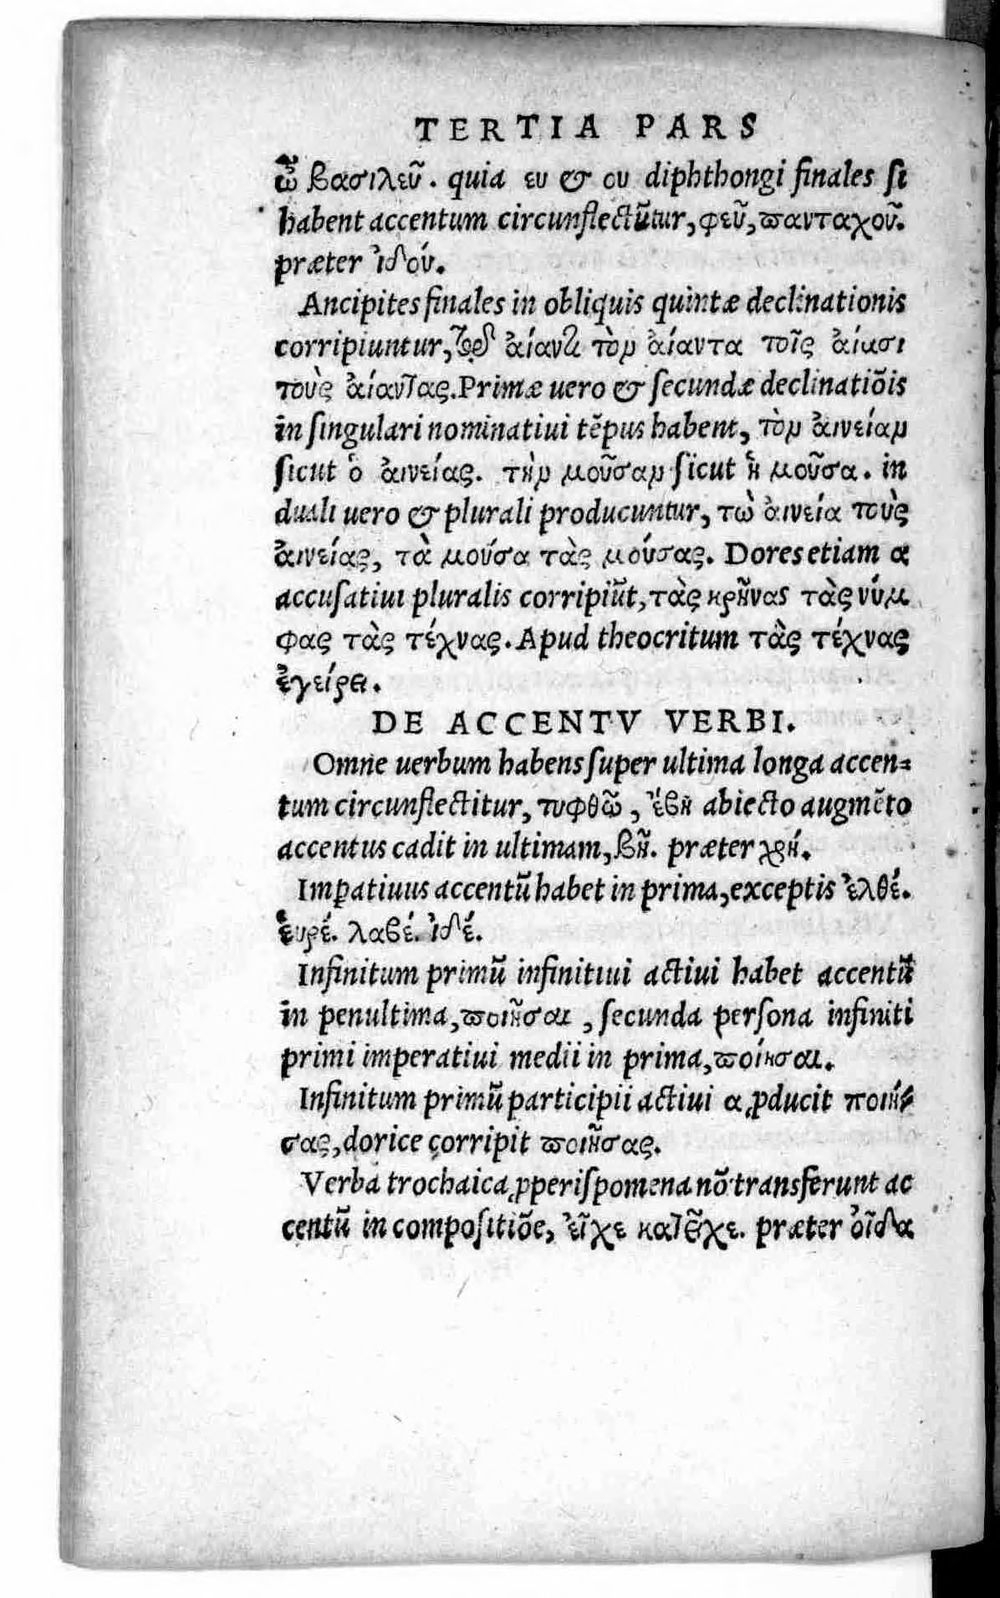 TERTIA PARS
ὦ βασιλεῦ. quia ευ & ου diphthongi finales si
habent accentum circunflectũtur, φεῦ, πανταχοῦ.
præter ἰδού.
Ancipites finales in obliquis quintæ declinationis
corripiuntur, αἴαντα τὸν αἴαντα τοῖς αἴασι
τοὺς αἴαντας. Primæ uero & secundæ declinatiõis
in singulari nominatiui tẽpus habent, τὸν αἰνείαν
sicut ὁ αἰνείας. τὴν μοῦσαν sicut ἡ μοῦσα. in
duali uero & plurali producuntur, τὼ αἰνεία τοὺς
αἰνείας, τὰ μούσα τὰς μούσας. Dores etiam α
accusatiui pluralis corripiũt, τὰς κρῆνας τὰς νύμ
φας τὰς τέχνας. Apud theocritum τὰς τέχνας
ἐγείρει.
DE ACCENTV VERBI.
Omne uerbum habens super ultima longa accen-
tum circunflectitur, τυφθῶ, ἔβη abiecto augmẽto
accentus cadit in ultimam, βῆ. præter χρή.
Imꝑatiuus accentũ habet in prima, exceptis ἐλθέ.
εὑρέ. λαβέ. ἰδέ.
Infinitum primũ infinitiui actiui habet accentũ
in penultima, ποιῆσαι, secunda persona infiniti
primi imperatiui medii in prima, ποίησαι.
Infinitum primũ participii actiui α ꝓducit ποιή-
σας, dorice corripit ποιῆσας.
Verba trochaica ꝓperispomena nõ transferunt ac
centũ in compositiõe, εἶχε κατεῖχε. præter οἶδα